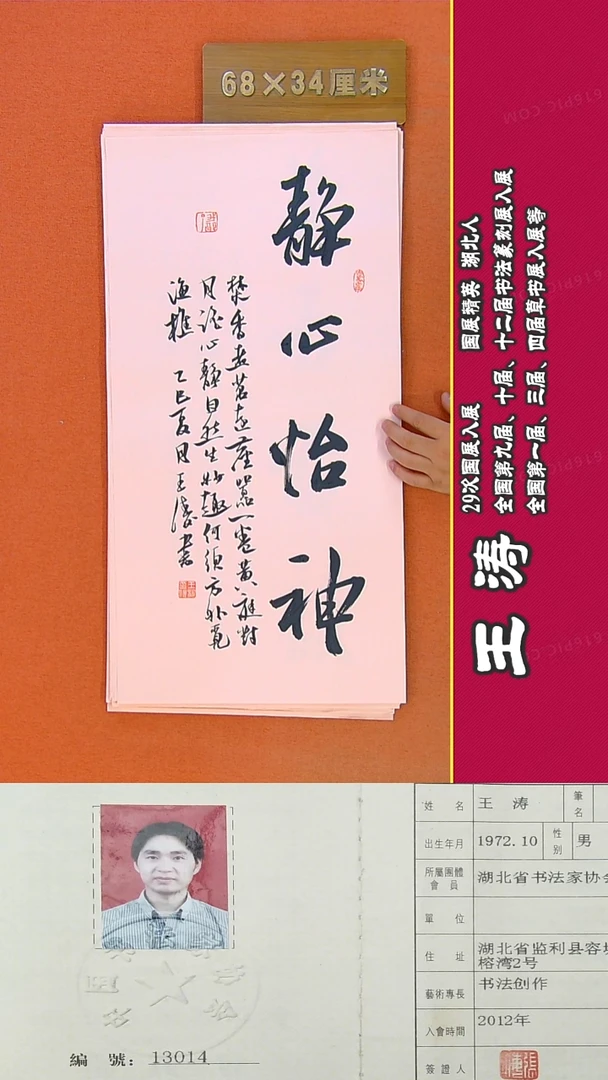 68×34厘米
静心怡神
焚香煮茗远尘嚣一卷黄庭对
月读心静自然生妙趣何须方外觅
渔樵 乙巳夏月王涛书
王涛
29次国展入展 国展精英 湖北人
全国第九届、十届、十二届书法篆刻展入展
全国第一届、三届、四届草书展入展等
姓 名 王 涛 筆 名
出生年月 1972.10 性 别 男
所屬團體 會 員 湖北省书法家协会
單 位
住 址 湖北省监利县容城
榕湾2号
藝術專長 书法创作
入會時間 2012年
簽 證 人
編 號: 13014